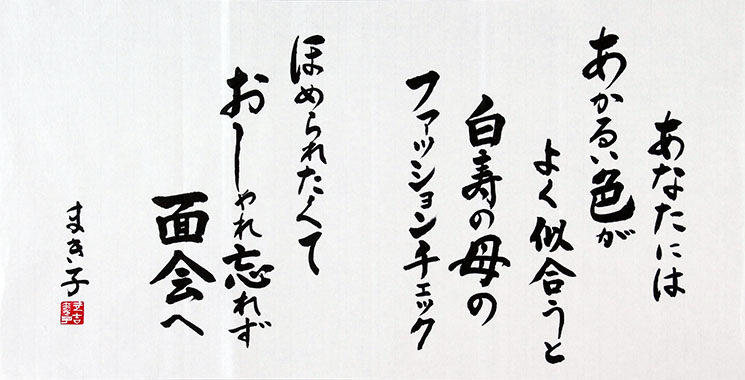 あなたには
あかるい色が
よく似合うと
白寿の母の
ファッションチェック
ほめられたくて
おしゃれ忘れず
面会へ
まき子